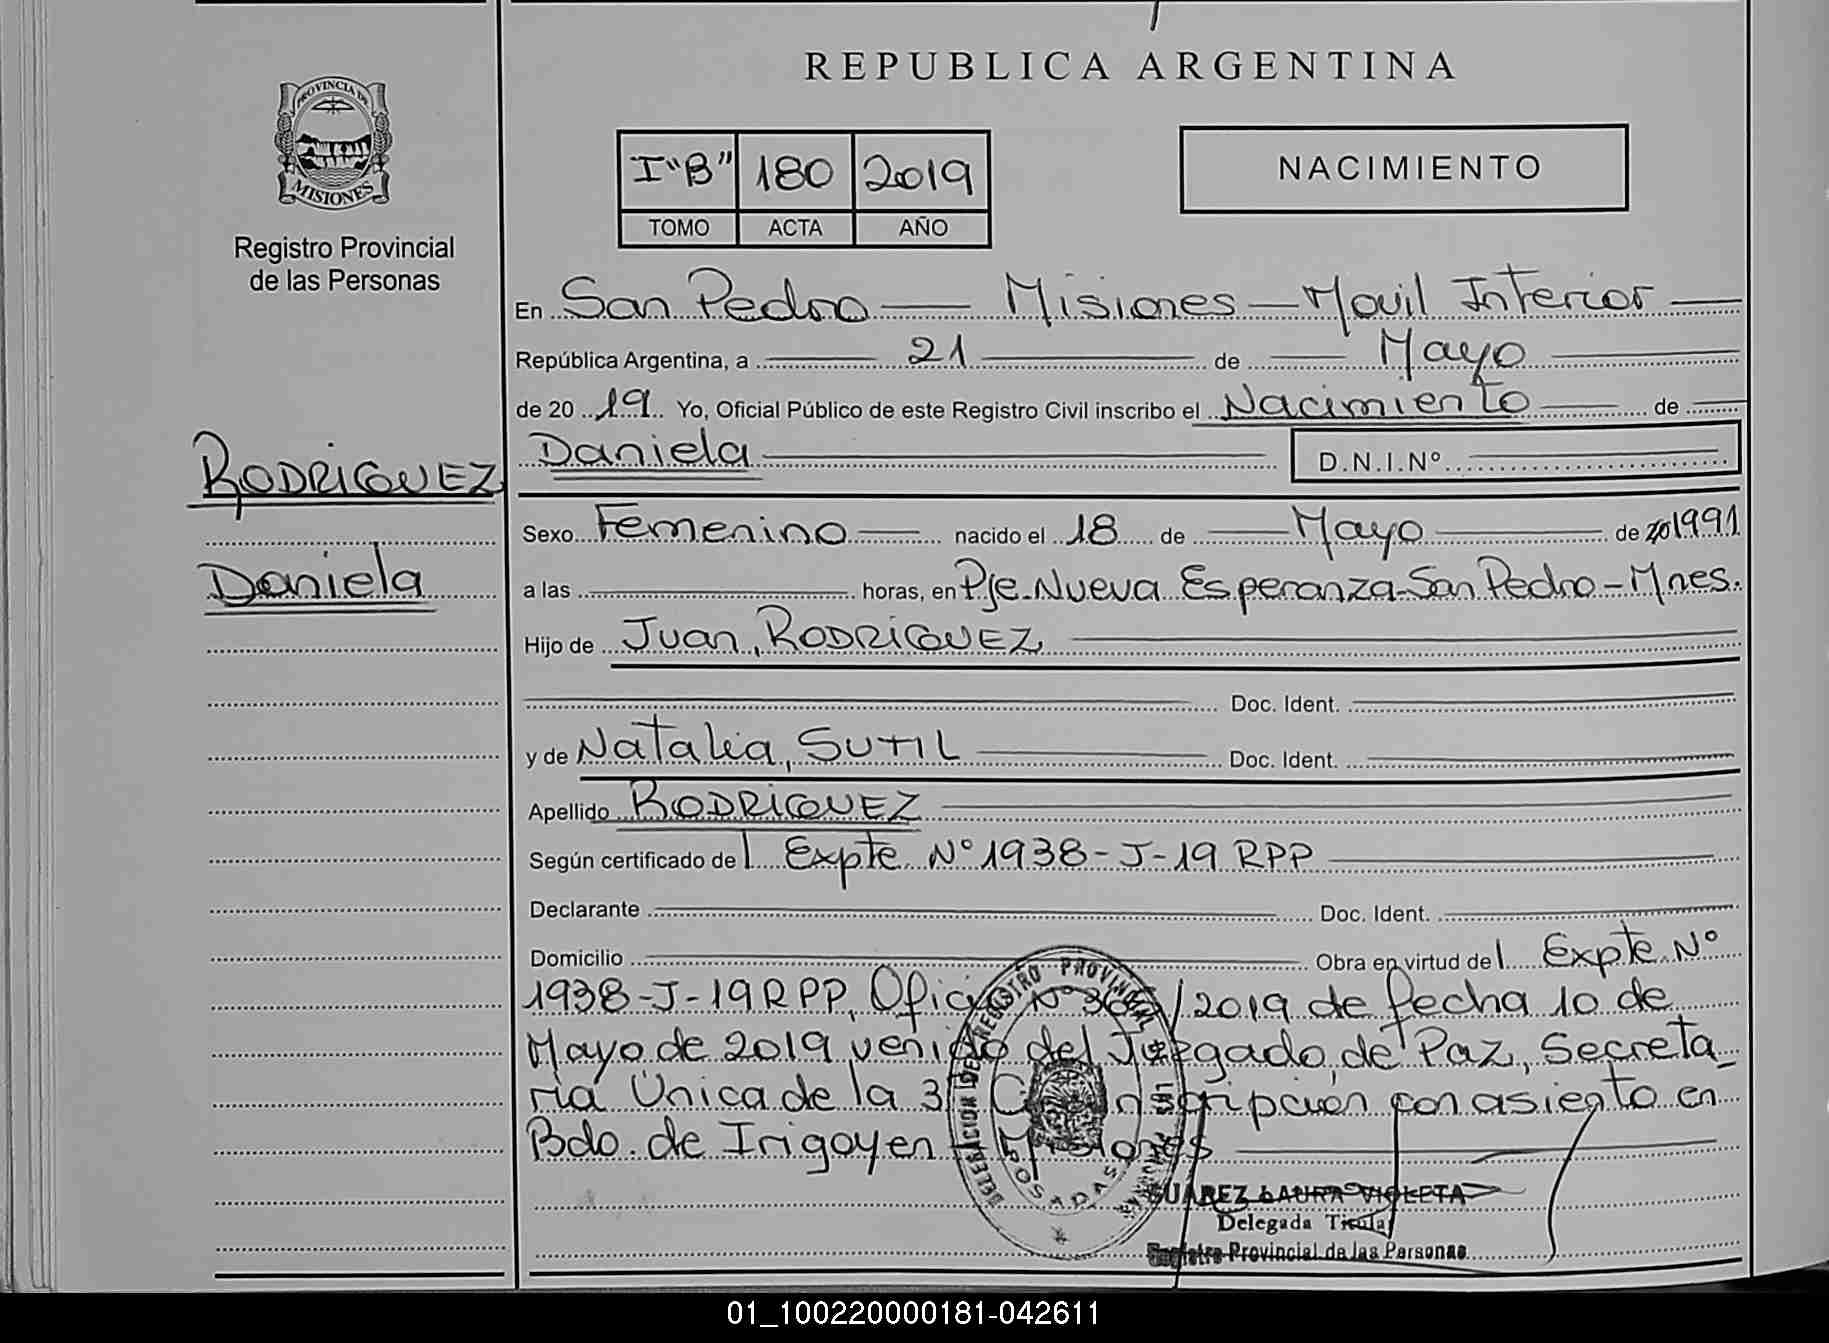 REPUBLICA ARGENTINA
PROVINCIA DE
MISIONES
Registro Provincial
de las Personas
I "B" 180 2019
TOMO ACTA AÑO
NACIMIENTO
En San Pedro — Misiones — Movil Interior
República Argentina, a 21 de Mayo
de 20 19 Yo, Oficial Público de este Registro Civil inscribo el Nacimiento de
Daniela D.N.I.Nº
RODRIGUEZ
Daniela
Sexo Femenino nacido el 18 de Mayo de 1991
a las horas, en Pje. Nueva Esperanza-San Pedro-Mnes.
Hijo de Juan, RODRIGUEZ
Doc. Ident.
y de Natalia, SUTIL Doc. Ident.
Apellido RODRIGUEZ
Según certificado de Expte Nº 1938-J-19 RPP
Declarante Doc. Ident.
Domicilio Obra en virtud de Expte Nº
1938-J-19 RPP, Oficio Nº /2019 de fecha 10 de
Mayo de 2019 venido del Juzgado de Paz, Secreta-
ria Unica de la 3 Circunscripción con asiento en
Bdo. de Irigoyen - Misiones
DELEGACION DEL REGISTRO PROVINCIAL DE LAS PERSONAS
POSADAS
SUÁREZ LAURA VIOLETA
Delegada Titular
Registro Provincial de las Personas
01_100220000181-042611